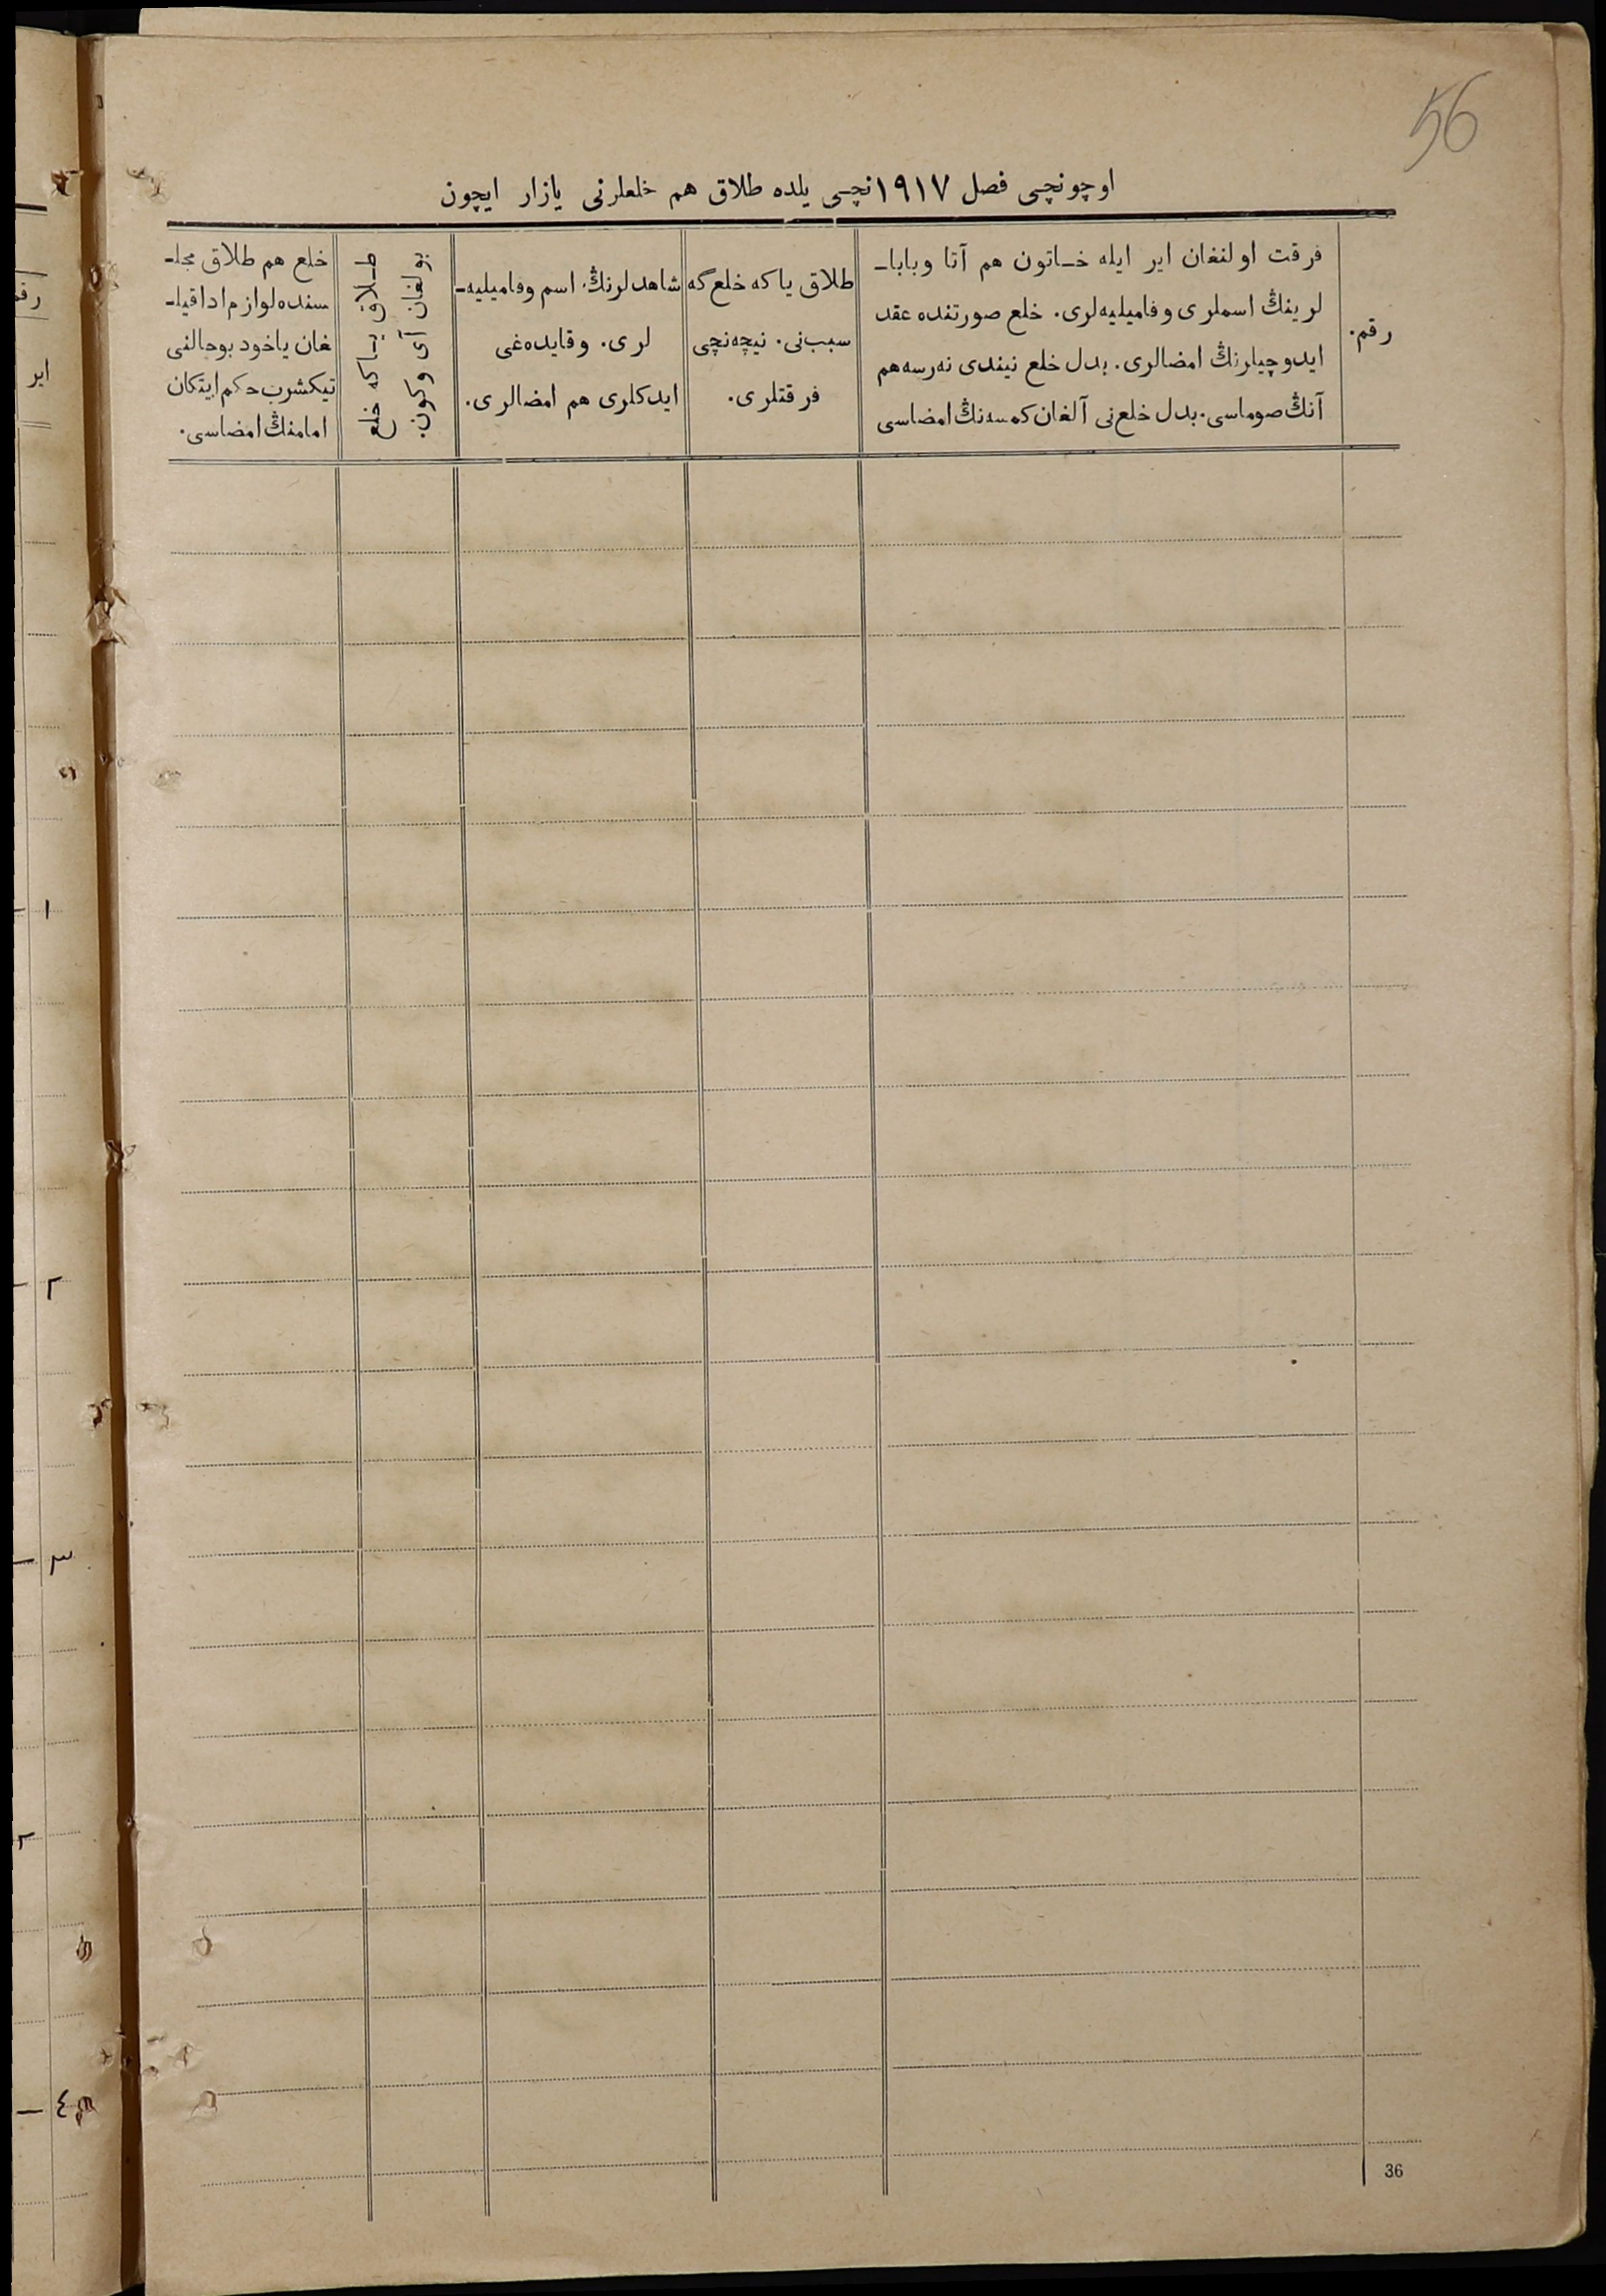 56
اوچونچی فصل ١٩١٧نچی یلده طلاق هم خلعلرنی یازار ایچون
رقم.
فرقت اولنغان ایر ایله خـاتون هم آتا وبابا۔
لرینڭ اسملری وفامیلیه‌لری. خلع صورتنده عقد
ایدوچیلرنڭ امضالری. بدل خلع نیندی نه‌رسه‌هم
آنڭ صوماسی. بدل خلع‌نی آلغان كمسه‌نڭ امضاسی
طلاق یاكه خلع‌گه
سبب‌نی. نیچه‌نچی
فرقتلری.
شاهدلرنڭ اسم وفامیلیه۔
لری. وقایده‌غی
ایدكلری هم امضالری.
طـلاق یـاكه خلع
بولغان آی وكون.
خلع هم طلاق مجلـ
سنده‌لوازم‌اداقیلـ
غان یاخود بوحالنی
تیكشرب حكم ایتكان
امامنڭ امضاسی.
36
رقم
ایر
١
٢
٣
٤